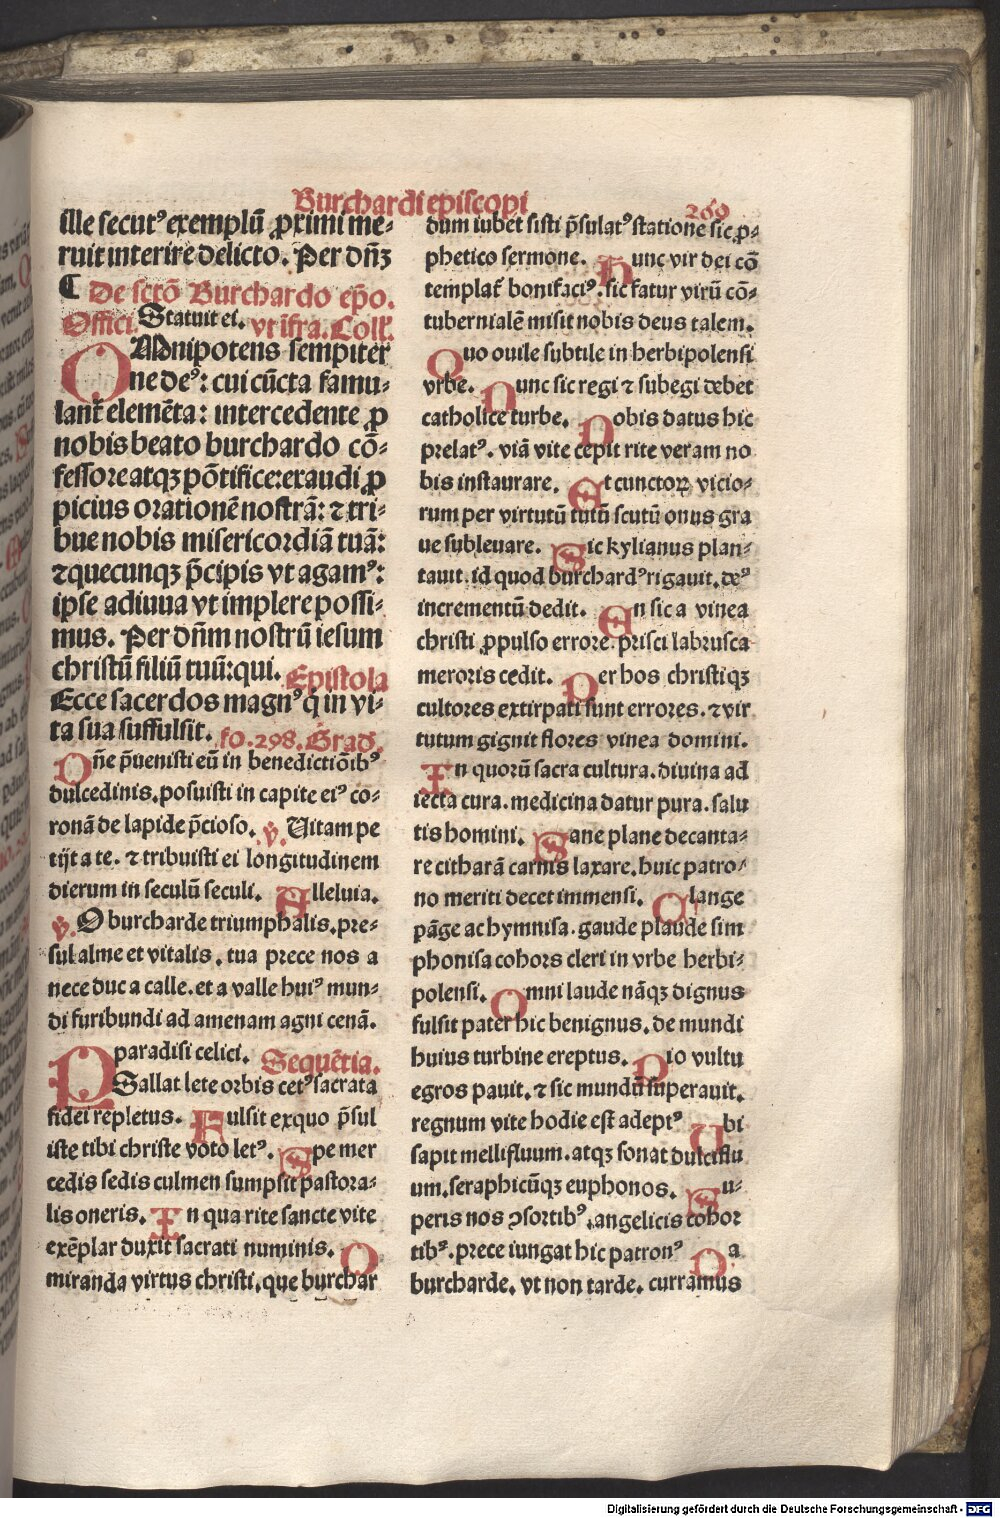 Burchardi episcopi
269
ille secutꝰ exemplū ꝓximi me-
ruit interire delicto. Per dn̄ꝫ
¶ De sctō Burchardo ep̄o.
Offici. Statuit ei. vt ifra. Coll.
OMnipotens sempiter
ne deꝰ: cui cūcta famu-
lant᷑ elemēta: intercedente ꝓ
nobis beato burchardo cō-
fessore atqꝫ pōtifice: exaudi ꝓ
picius orationē nostrā: ⁊ tri-
bue nobis misericordiā tuā:
⁊ quecunqꝫ p̄cipis vt agamꝰ:
ipse adiuua vt implere possi-
mus. Per dn̄m nostrū iesum
christū filiū tuū: qui. Epistola
Ecce sacerdos magnꝰ q̇ in vi-
ta sua suffulsit. fo. 298. Grad.
Dn̄e p̄uenisti eū in benedictiōibꝰ
dulcedinis. posuisti in capite eiꝰ co-
ronā de lapide p̄cioso. ꝟ. Uitam pe
tijt a te. ⁊ tribuisti ei longitudinem
dierum in seculū seculi. Alleluia.
ꝟ. O burcharde triumphalis. pre-
sul alme et vitalis. tua prece nos a
nece duc a calle. et a valle huiꝰ mun-
di furibundi ad amenam agni cenā.
paradisi celici. Sequētia.
PSallat lete orbis cetꝰ sacrata
fidei repletus. Fulsit ex quo p̄sul
iste tibi christe voto letꝰ. Spe mer
cedis sedis culmen sumpsit pastora-
lis oneris. In qua rite sancte vite
exēplar duxit sacrati numinis. O
miranda virtus christi. que burchar
dum iubet sisti p̄sulatꝰ statione sic ꝓ-
phetico sermone. Hunc vir dei cō
templat᷑ bonifaciꝰ. sic fatur virū cō-
tubernialē misit nobis deus talem.
Quo ouile subtile in herbipolensi
vrbe. Nunc sic regi ⁊ subegi debet
catholice turbe. Nobis datus hic
prelatꝰ. viā vite cepit rite veram no
bis instaurare. Et cunctoꝝ vicio-
rum per virtutū tutū scutū onus gra
ue subleuare. Sic kylianus plan-
tauit. id quod burchardꝰ rigauit. deꝰ
incrementū dedit. En sic a vinea
christi ꝓpulso errore. prisci labrusca
meroris cedit. Per hos christi qꝫ
cultores extirpati sunt errores. ⁊ vir
tutum gignit flores vinea domini.
In quorū sacra cultura. diuina ad
iecta cura. medicina datur pura. salu
tis homini. Sane plane decanta-
re citharā carnis laxare. huic patro-
no meriti decet immensi. Clange
pāge ac hymnisa. gaude plaude sim
phonisa cohors cleri in vrbe herbi-
polensi. Omni laude nāqꝫ dignus
fulsit pater hic benignus. de mundi
huius turbine ereptus. Pio vultu
egros pauit. ⁊ sic mundū superauit.
regnum vite hodie est adeptꝰ Ubi
sapit mellifluum. atqꝫ sonat dulciflu
um. seraphicūqꝫ euphonos. Su-
peris nos ꝯsortibꝰ. angelicis cohor
tibꝰ. prece iungat hic patronꝰ Da
burcharde. vt non tarde. curramus
Digitalisierung gefördert durch die Deutsche Forschungsgemeinschaft - DFG